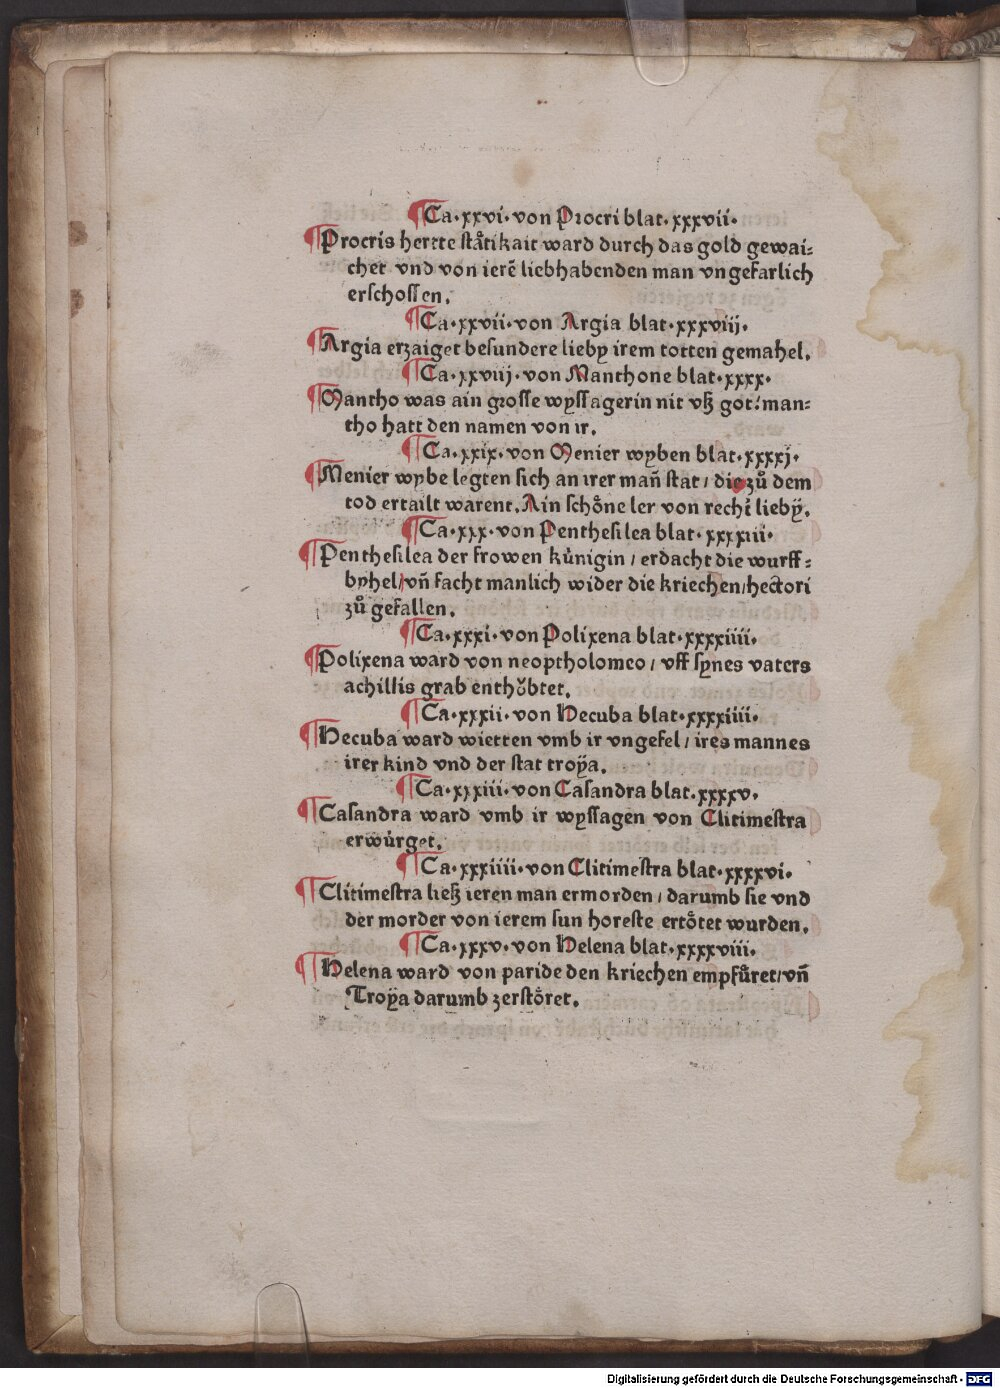 ¶Ca·xxvi·von Procri blat·xxxvii·
¶Procris hertte ståtikait ward durch das gold gewai⸗
chet vnd von ierē liebhabenden man vngefarlich
erſchoſſen.
¶Ca·xxvii·von Argia blat·xxxviij·
¶Argia erzaiget beſundere lieby irem totten gemahel.
¶Ca·xxviij·von Manthone blat·xxxx·
¶Mantho was ain groſſe wyſſagerin nit vß got: man⸗
tho hatt den namen von ir.
¶Ca·xxix·von Menier wyben blat·xxxxj·
¶Menier wybe legten ſich an irer mañ ſtat / die zů dem
tod ertailt warent. Ain ſchöne ler von recht liebÿ.
¶Ca·xxx·von Pentheſilea blat·xxxxiii·
¶Pentheſilea der frowen kůnigin / erdacht die wurff⸗
byhel/vñ facht manlich wider die kriechen/hectori
zů gefallen.
¶Ca·xxxi·von Polixena blat·xxxxiiii·
¶Polixena ward von neoptholomeo / vff ſynes vaters
achillis grab enthŏbtet.
¶Ca·xxxii·von Hecuba blat·xxxxiiii·
¶Hecuba ward wietten vmb ir vngefel / ires mannes
irer kind vnd der ſtat troÿa.
¶Ca·xxxiii·von Caſandra blat·xxxxv·
¶Caſandra ward vmb ir wyſſagen von Clitimeſtra
erwůrget.
¶Ca·xxxiiii·von Clitimeſtra blat·xxxxvi·
¶Clitimeſtra ließ ieren man ermorden / darumb ſie vnd
der morder von ierem ſun horeſte ertötet wurden.
¶Ca·xxxv·von Helena blat·xxxxviii·
¶Helena ward von paride den kriechen empfůret/vñ
Troÿa darumb zerſtöret.
Digitalisierung gefördert durch die Deutsche Forschungsgemeinschaft - DFG